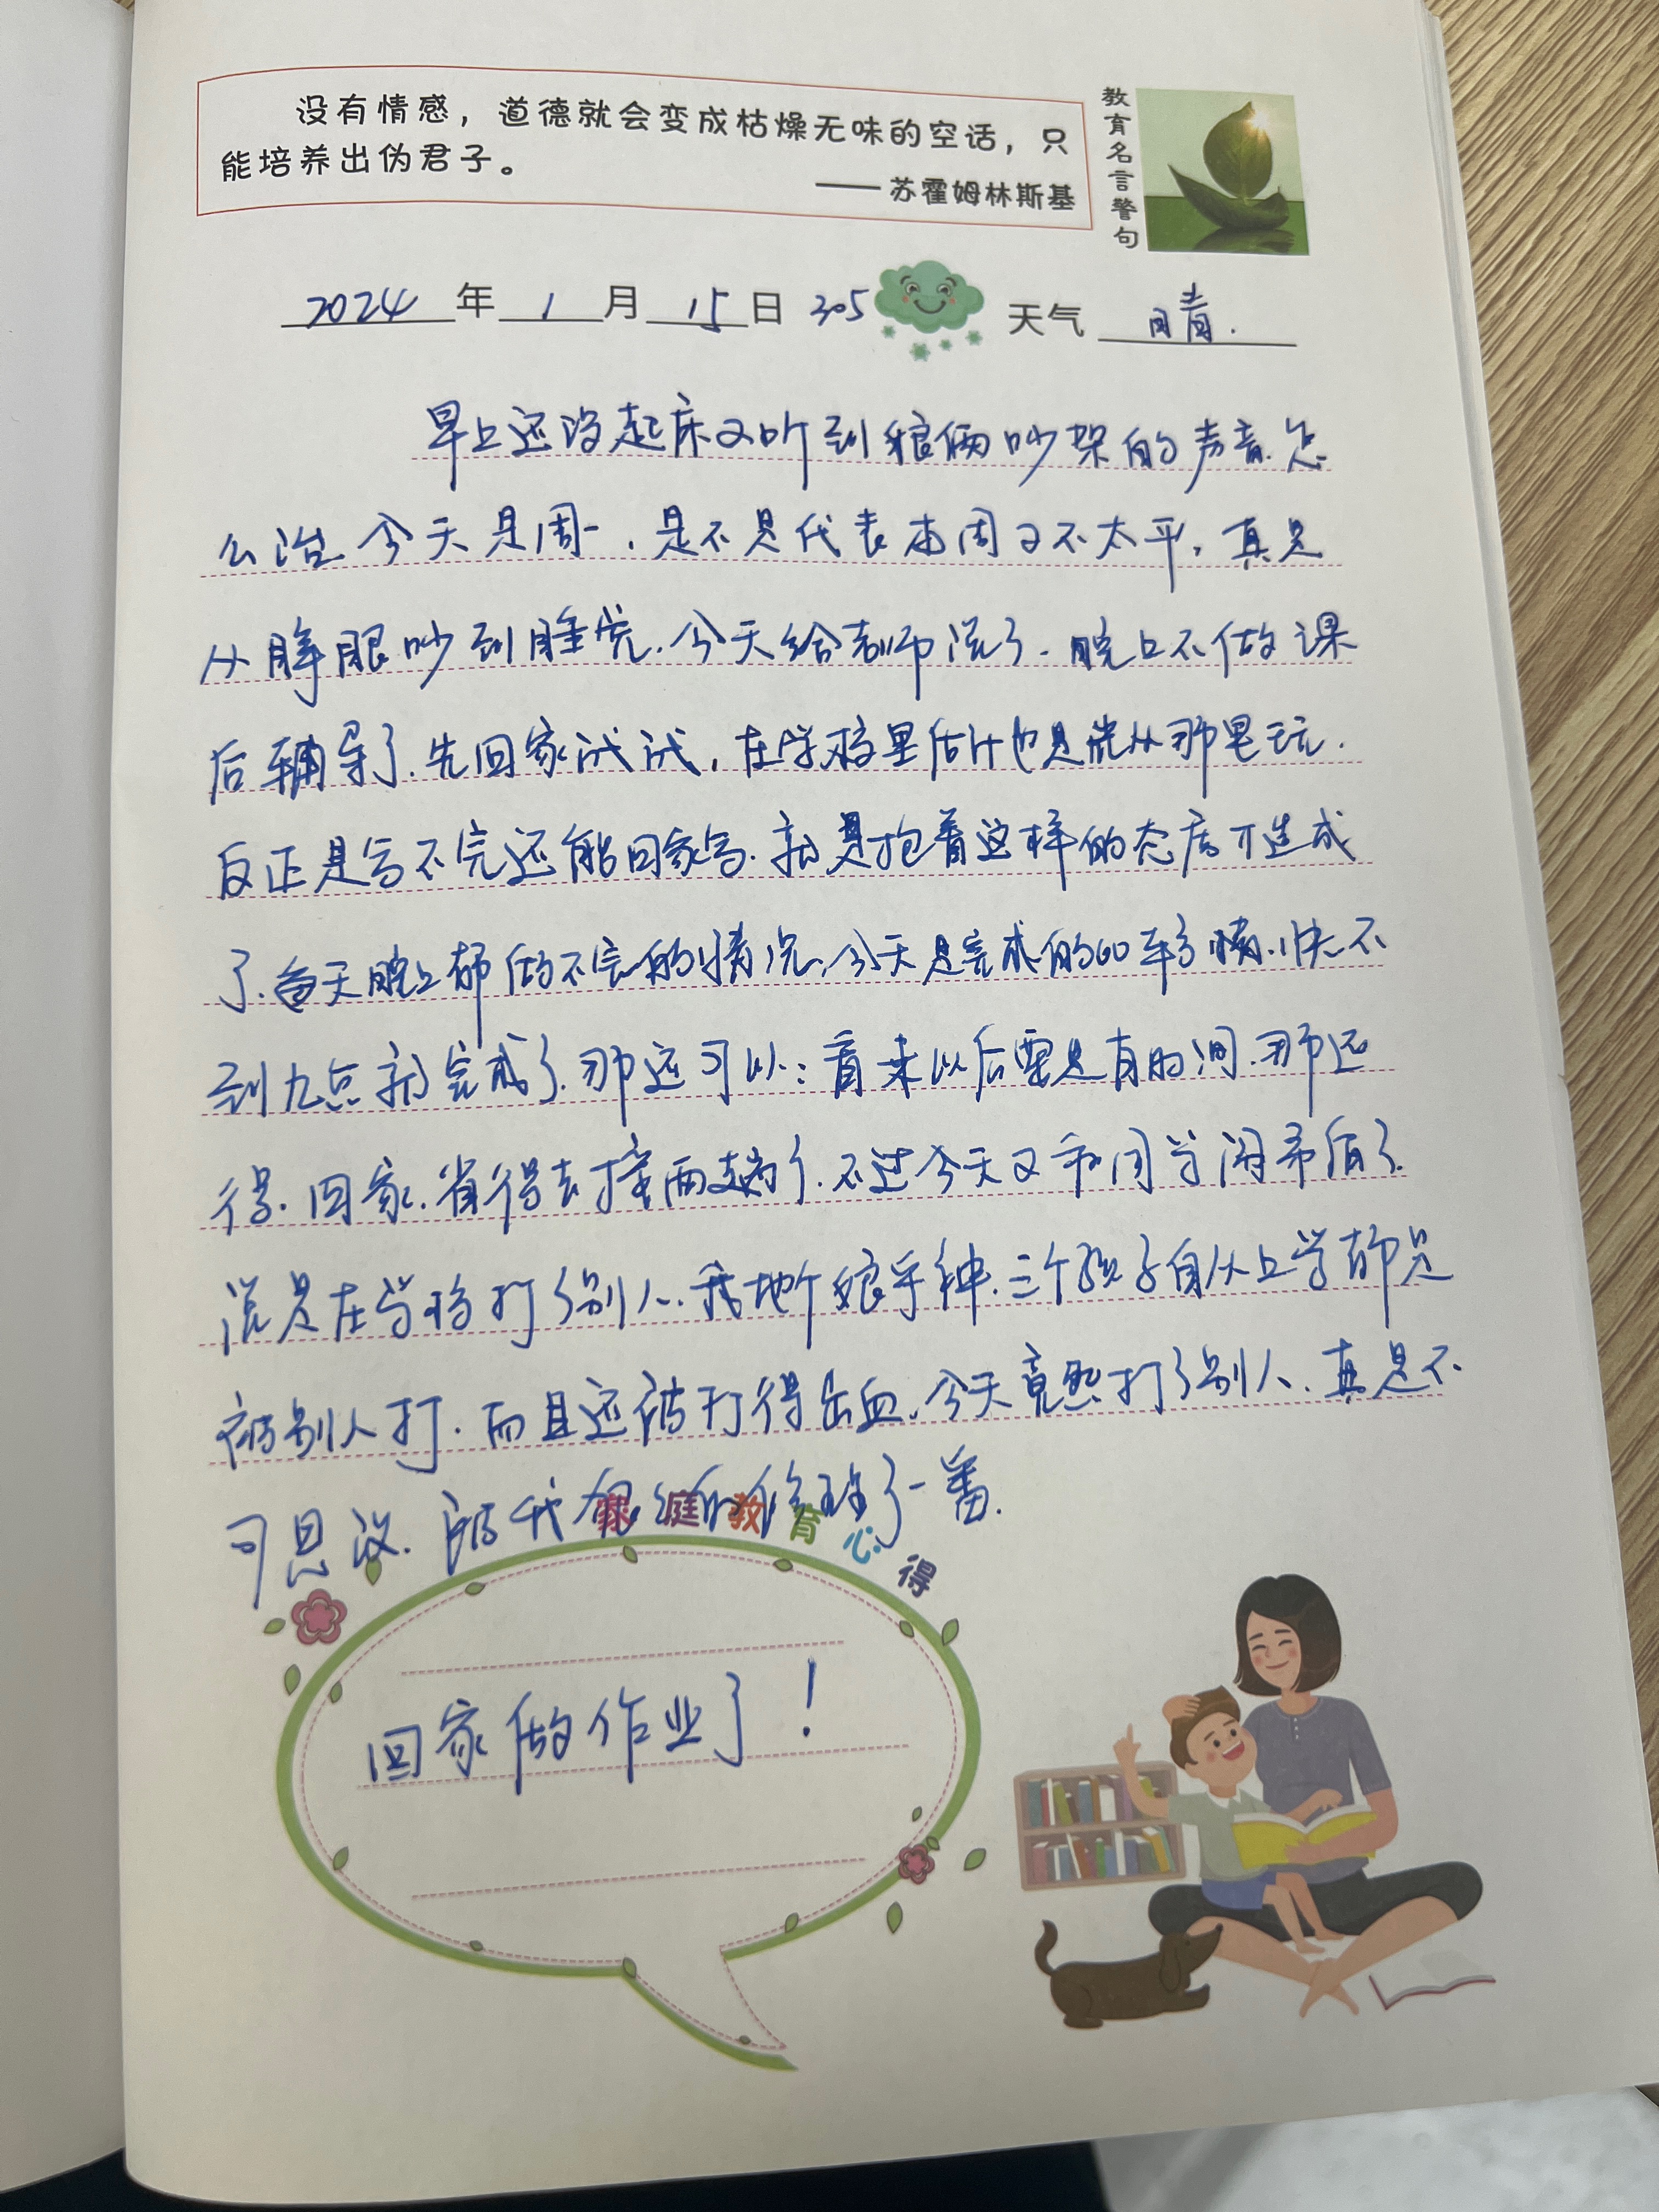 没有情感，道德就会变成枯燥无味的空话，只
能培养出伪君子。
——苏霍姆林斯基
教育名言警句
2024年1月15日 305 天气 晴.
早上还没起床又听到娘俩吵架的声音.怎
么治.今天是周一.是不是代表本周又不太平,真是
从睁眼吵到睡觉.今天给老师说了.晚上不做课
后辅导了.先回家试试,在学校里估计也是光从那里玩.
反正是写不完还能回家写.就是抱着这样的态度才造成
了.每天晚上都做不完的情况,今天是完成的60 快不
到九点就完成了.那还可以:看来以后要是有时间.那还
得.回家.省得去接两趟了.不过今天又和同学闹矛盾了.
说是在学校打了别人.我地个娘乎种.三个孩子自从上学都是
被别人打.而且还被打得出血.今天竟然打了别人.真是不
可思议. 我 修理了一番.
家庭教育心得
回家做作业了！